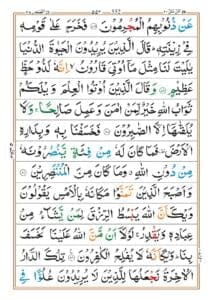 عَنْ ذُنُوْبِهِمُ الْمُجْرِمُوْنَ ۝ فَخَرَجَ عَلٰى قَوْمِهٖ
فِيْ زِيْنَتِهٖ ؕ قَالَ الَّذِيْنَ يُرِيْدُوْنَ الْحَيٰوةَ الدُّنْيَا
يٰلَيْتَ لَنَا مِثْلَ مَاۤ اُوْتِيَ قَارُوْنُ ۙ اِنَّهٗ لَذُوْ حَظٍّ
عَظِيْمٍ ۝ وَقَالَ الَّذِيْنَ اُوْتُوا الْعِلْمَ وَيْلَكُمْ ثَوَابُ
اللّٰهِ خَيْرٌ لِّمَنْ اٰمَنَ وَعَمِلَ صَالِحًا ۚ وَلَا
يُلَقّٰىهَاۤ اِلَّا الصّٰبِرُوْنَ ۝ فَخَسَفْنَا بِهٖ وَبِدَارِهِ
الْاَرْضَ ۫ فَمَا كَانَ لَهٗ مِنْ فِئَةٍ يَّنْصُرُوْنَهٗ
مِنْ دُوْنِ اللّٰهِ ۗ وَمَا كَانَ مِنَ الْمُنْتَصِرِيْنَ ۝
وَاَصْبَحَ الَّذِيْنَ تَمَنَّوْا مَكَانَهٗ بِالْاَمْسِ يَقُوْلُوْنَ
وَيْكَاَنَّ اللّٰهَ يَبْسُطُ الرِّزْقَ لِمَنْ يَّشَآءُ مِنْ
عِبَادِهٖ وَيَقْدِرُ ۚ لَوْلَاۤ اَنْ مَّنَّ اللّٰهُ عَلَيْنَا لَخَسَفَ
بِنَا ؕ وَيْكَاَنَّهٗ لَا يُفْلِحُ الْكٰفِرُوْنَ ۝ تِلْكَ الدَّارُ
الْاٰخِرَةُ نَجْعَلُهَا لِلَّذِيْنَ لَا يُرِيْدُوْنَ عُلُوًّا فِي